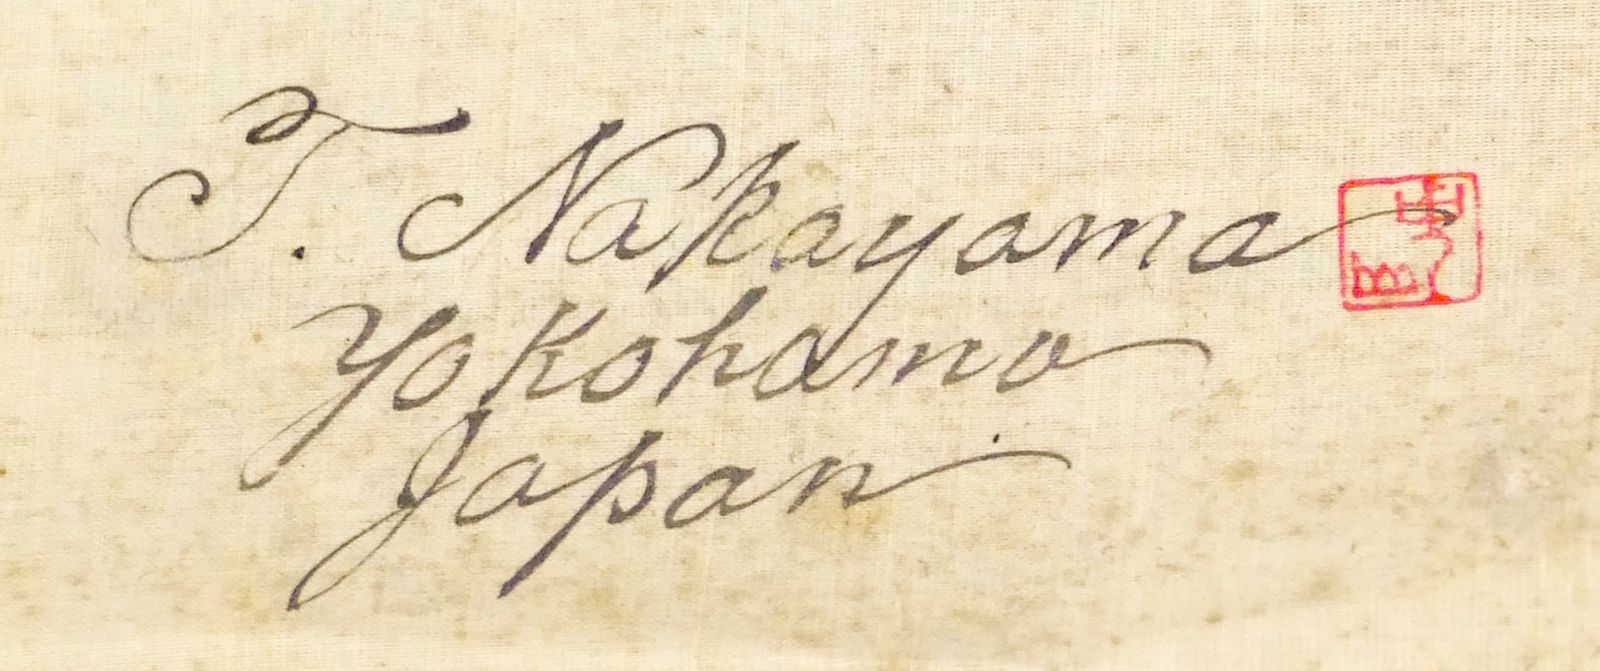 T. Nakayama
Yokohama
Japan